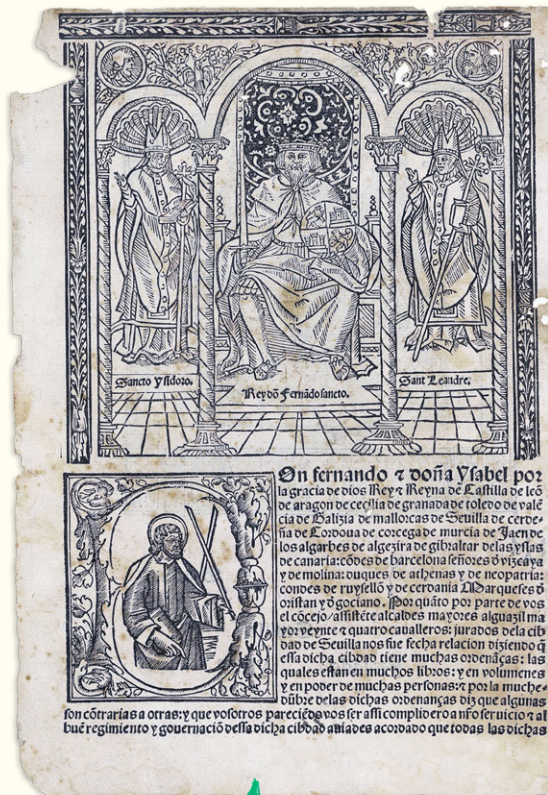 Sancto Ysidoro.
Rey dõ Fernãdo sancto.
Sant Leandre.
On fernando ⁊ doña Ysabel por
la gracia de dios Rey ⁊ Reyna de Castilla de leõ
de aragon de cecilia de granada de toledo de valẽ
cia de Galizia de mallorcas de Seuilla de cerde-
ña de Cordoua de corcega de murcia de Jaen de
los algarbes de algezira de gibraltar de las yslas
de canaria: cõdes de barcelona señores đ vizcaya
y de molina: duques de athenas y de neopatria:
condes de ruysellõ y de cerdania Marqueses đ
oristan y đ gociano. Por quãto por parte de vos
el cõcejo/ assistẽte alcaldes mayores alguazil ma
yor veynte ⁊ quatro caualleros: jurados dela cib
dad de Seuilla nos fue fecha relacion diziendo q̃
essa dicha cibdad tiene muchas ordenãças: las
quales estan en muchos libros: y en volumenes
y en poder de muchas personas: ⁊ por la muche-
dũbre delas dichas ordenanças diz que algunas
son cõtrarias a otras: y que vosotros pareciẽdovos ser assi complidero a nr̃o seruicio ⁊ al
buẽ regimiento y gouernaciõ dessa dicha cibdad auiades acordado que todas las dichas